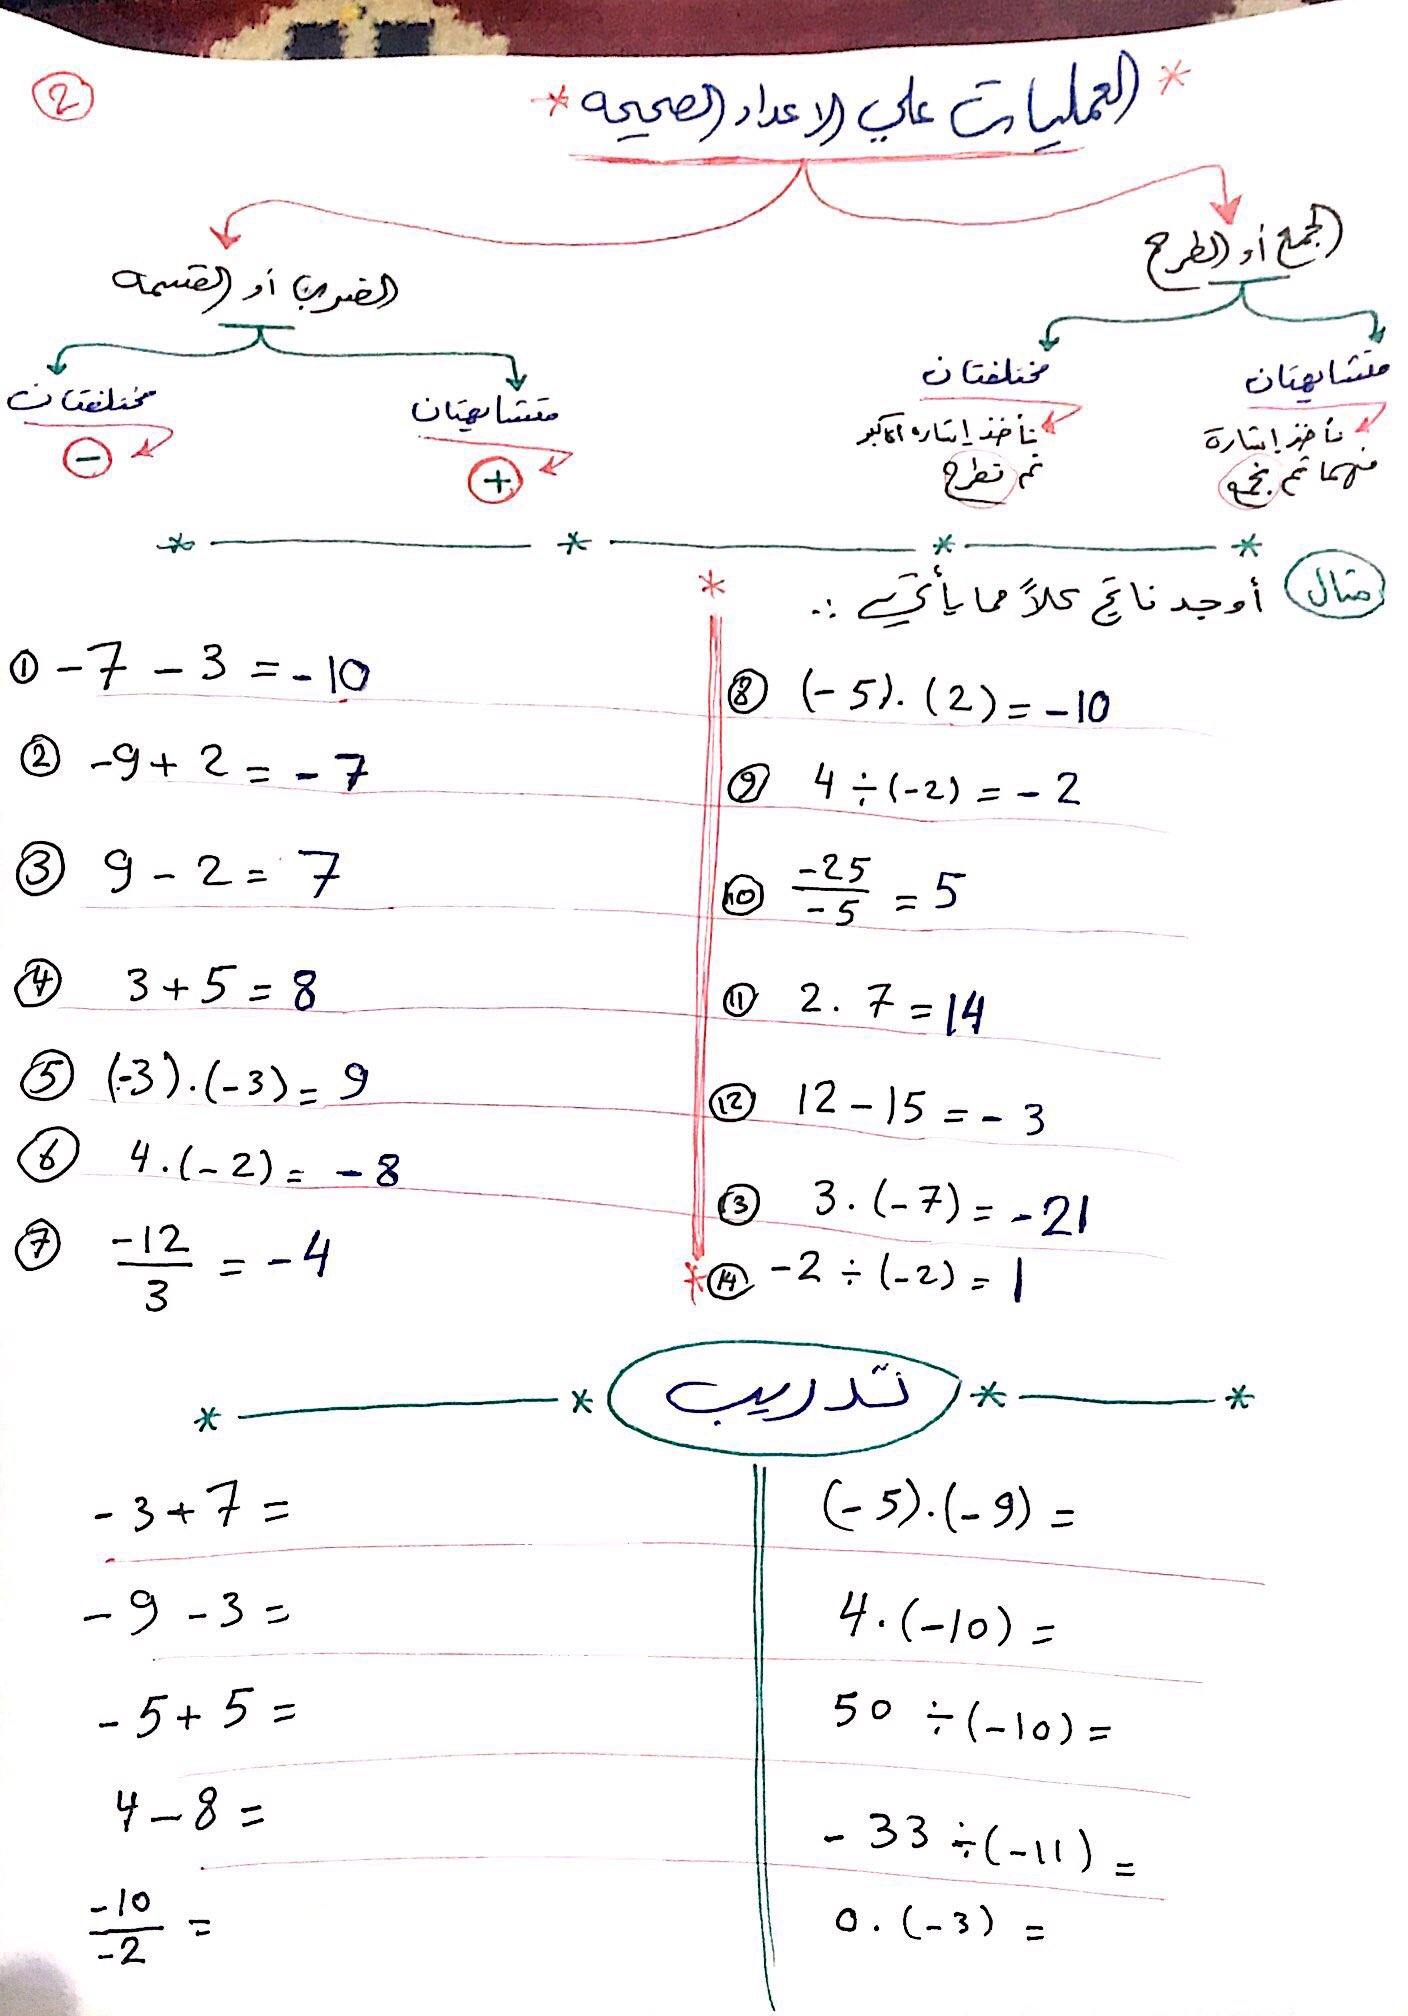 2
* العمليات علي الاعداد الصحيحه *
الجمع أو الطرح
الضرب أو القسمه
متشابهتان
مختلفتان
تأخذ إشارة
منهما ثم نجمع
تأخذ إشاره الأكبر
ثم نطرح
متشابهتان
مختلفتان
+
-
مثال
أوجد ناتج كلاً مما يأتي :.
① -7 - 3 = -10
② -9 + 2 = -7
③ 9 - 2 = 7
④ 3 + 5 = 8
⑤ (-3).(-3) = 9
⑥ 4.(-2) = -8
⑦ -12/3 = -4
⑧ (-5).(2) = -10
⑨ 4 ÷ (-2) = -2
⑩ -25/-5 = 5
⑪ 2.7 = 14
⑫ 12 - 15 = -3
⑬ 3.(-7) = -21
⑭ -2 ÷ (-2) = 1
تدريب
-3 + 7 =
-9 - 3 =
-5 + 5 =
4 - 8 =
-10/-2 =
(-5).(-9) =
4.(-10) =
50 ÷ (-10) =
-33 ÷ (-11) =
0.(-3) =